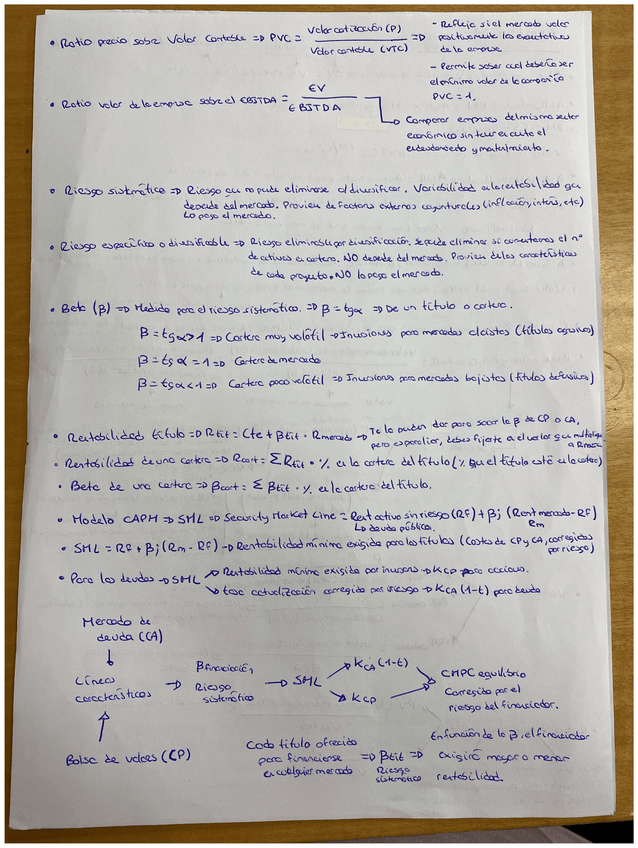 • Ratio precio sobre Valor Contable => PVC = Valor cotización (P) / Valor contable (VTC) =>
- Refleja si el mercado valora
positivamente las expectativas
de la empresa
- Permite saber cual debería ser
el mínimo valor de la compañía
PVC = 1,
• Ratio valor de la empresa sobre el EBITDA = EV / EBITDA
→ Comparar empresas del mismo sector
económico sin tener en cuenta el
endeudamiento y
• Riesgo sistemático => Riesgo que no puede eliminarse al diversificar. Variabilidad en la rentabilidad que
depende del mercado. Provienen de factores externos coyunturales (inflación, interés, etc)
Lo paga el mercado.
• Riesgo específico o diversificable => Riesgo eliminable por diversificación, se puede eliminar si aumentamos el nº
de activos en cartera. NO depende del mercado. Provien de las características
de cada proyecto. NO lo paga el mercado.
• Beta (β) => Medida para el riesgo sistemático. => β = tgα => De un título o cartera.
β = tgα > 1 => Cartera muy volátil → Inversiones para mercados alcistas (títulos agresivos)
β = tgα = 1 => Cartera de mercado
β = tgα < 1 => Cartera poco volátil => Inversiones para mercados bajistas (títulos defensivos)
• Rentabilidad título => Rtit = Cte + βtit · Rmercado → Te la pueden dar para sacar la β de CP o CA,
pero para ello, debes fijarte en el valor que multiplica
a Rmerc
• Rentabilidad de una cartera => Rcart = Σ Rtit · % en la cartera del título (% que el título está en la cartera)
• Beta de una cartera => βcart = Σ βtit · % en la cartera del título.
• Modelo CAPM => SML => Security Market Line = Rent activo sin riesgo (RF) + βj (Rent mercado - RF)
↳ deuda pública. Rm
• SML = RF + βj (Rm - RF) → Rentabilidad mínima exigida para los títulos (Costes de CP y CA, corregidos
por riesgo)
• Para las deudas → SML → Rentabilidad mínima exigida por inversores → KCP para acciones.
→ tasa actualización corregida por riesgo → KCA (1-t) para deuda
Mercado de
deuda (CA)
↓
Líneas
características → β financiación, Riesgo sistemático → SML → KCA (1-t)
→ KCP
→ CMPC equilibrio
Corregido por el
riesgo del financiador.
↑
Bolsa de valores (CP)
Cada título ofrecido
para financiarse
en cualquier mercado => βtit => 
Riesgo
sistemático
En función de la β, el financiador
exigirá mayor o menor
rentabilidad.